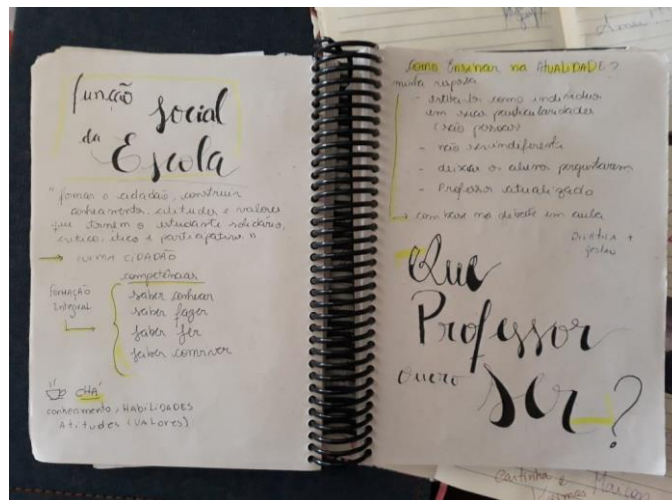 função
social
da
Escola
"formar o cidadão, construir
conhecimento, atitudes e valores
que tornem o estudante solidário,
crítico, ético e participativo"
→ FORMA CIDADÃO
competências
Formação
Integral
saber conhecer
saber fazer
saber ser
saber conviver
CHÁ
conhecimento, HABILIDADES
Atitudes (VALORES)
Como Ensinar na ATUALIDADE?
minha resposta
- como indivíduos
em suas particularidades
(são pessoas)
- não ser indiferente
- deixar os alunos perguntarem
- Professor atualizado
→ com base no debate em aula
Didática +
gestão
Que
Professor
quero
Ser?
Cartinha